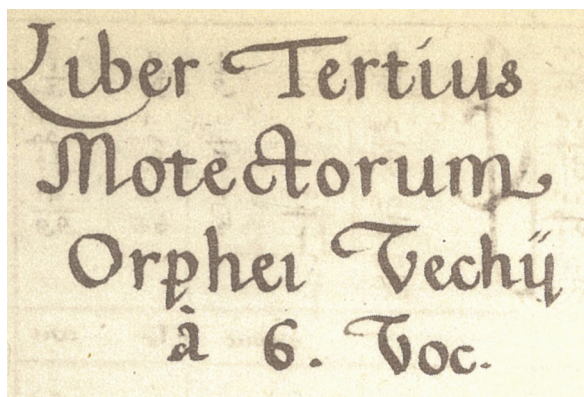 Liber Tertius
Motectorum
Orphei Vechij
à 6. Voc.